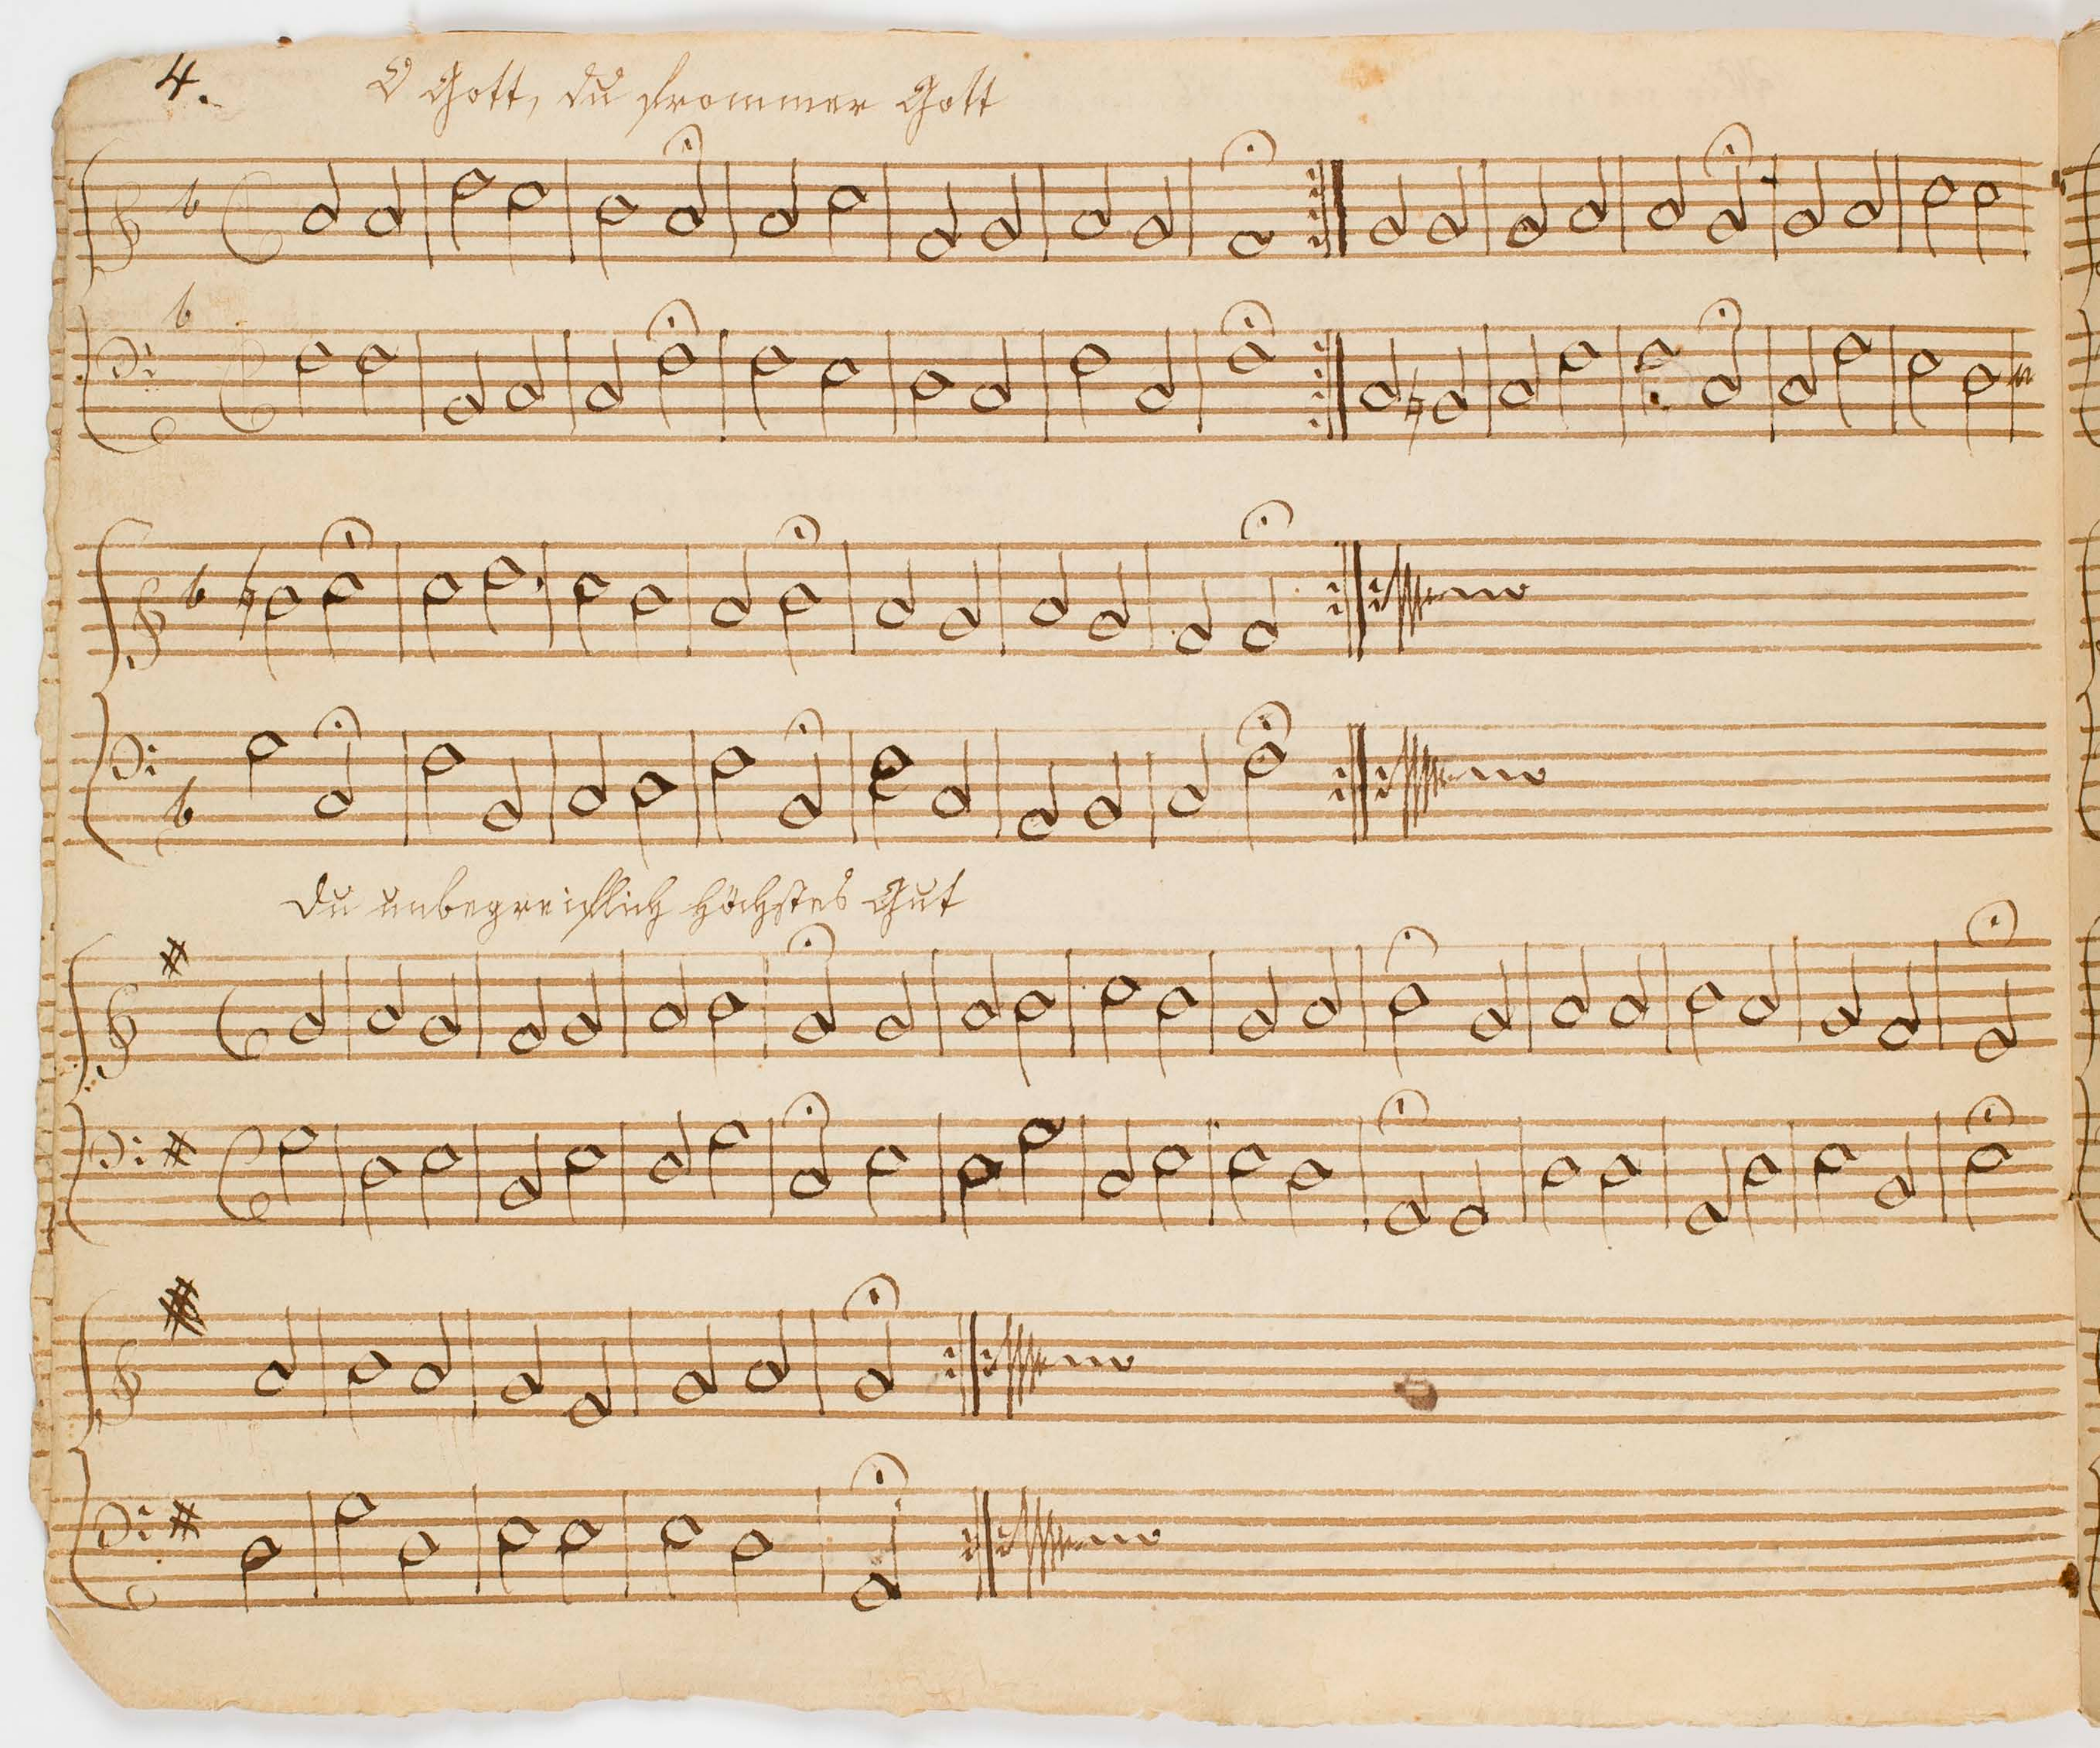 4.
O Gott, du frommer Gott
Du unbegreiflich höchstes Gut